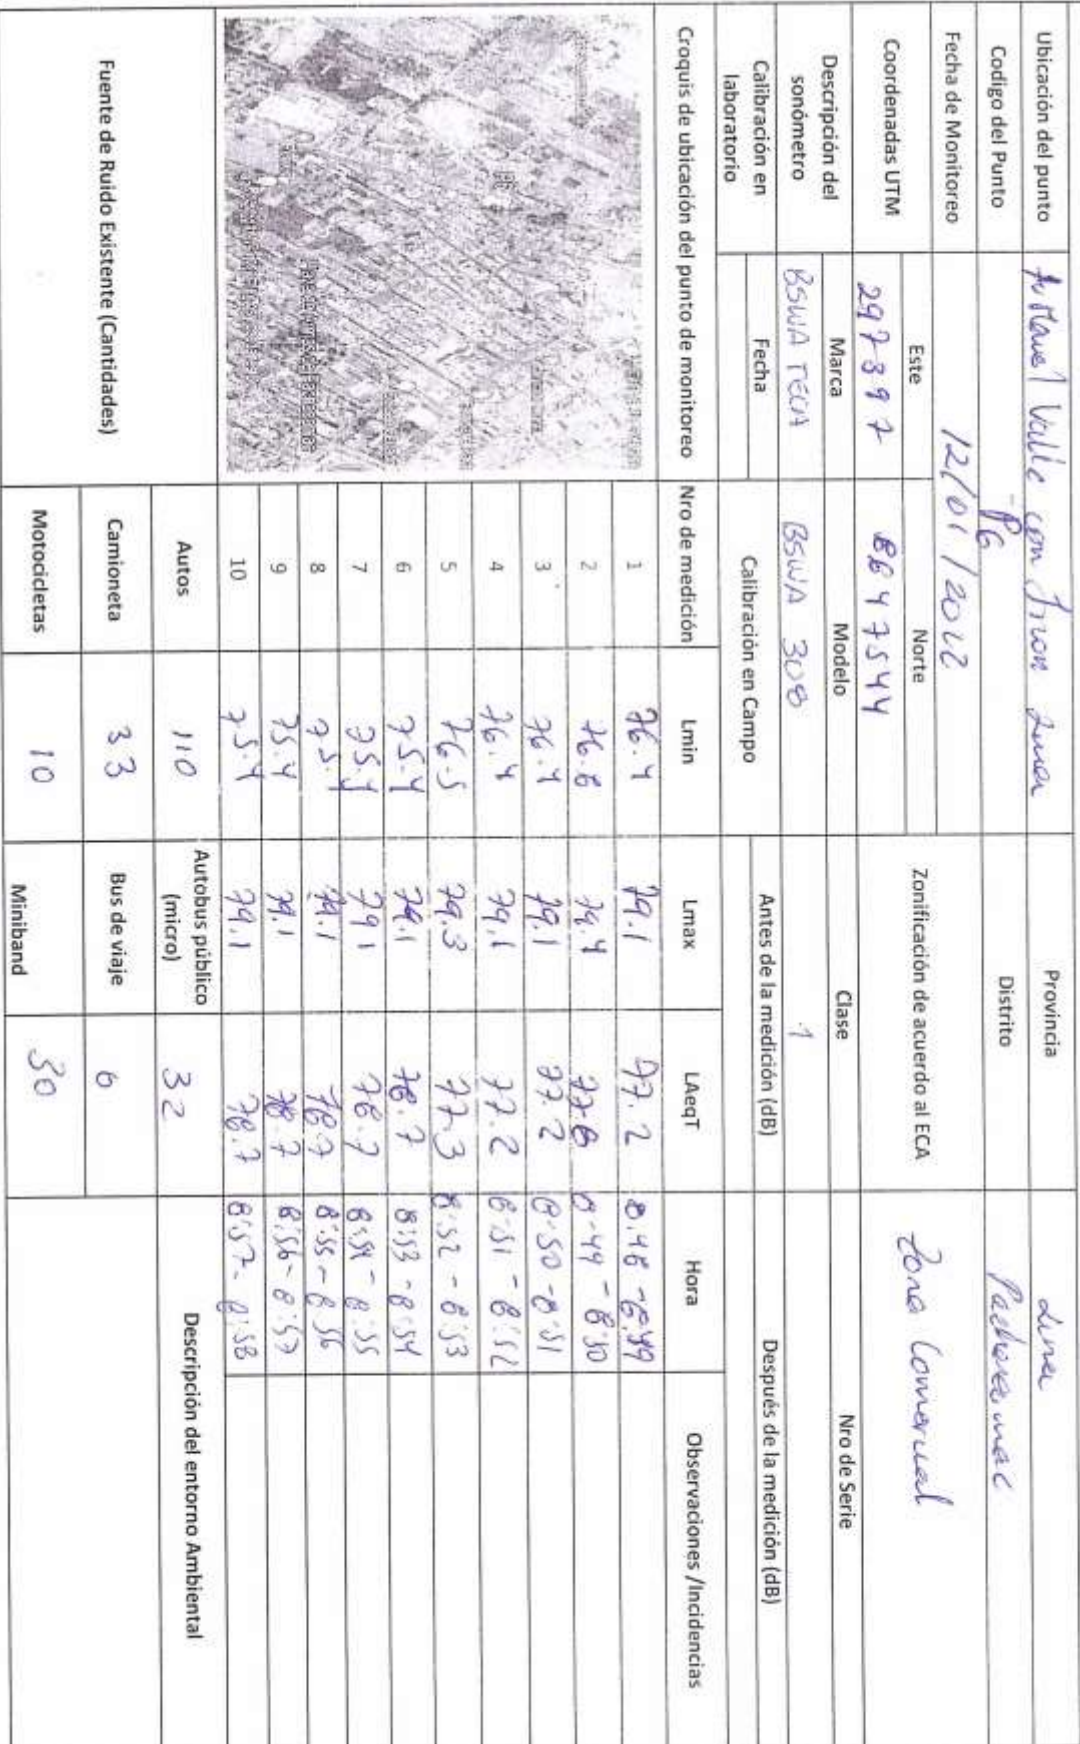 Ubicación del punto Av Manuel Valle con Jiron Lima Provincia Lima
Codigo del Punto P6 Distrito Pachacamac
Fecha de Monitoreo 12/01/2022 Zonificación de acuerdo al ECA Zona Comercial
Coordenadas UTM Este Norte
297397 8647544
Descripción del sonómetro Marca Modelo Clase Nro de Serie
BSWA TECH BSWA 308 1
Calibración en laboratorio Fecha Calibración en Campo Antes de la medición (dB) Después de la medición (dB)
Croquis de ubicación del punto de monitoreo Nro de medición Lmin Lmax LAeqT Hora Observaciones /Incidencias
1 76.4 79.1 77.2 8:48 - 8:49
2 76.8 79.4 77.8 8:49 - 8:50
3 76.4 79.1 77.2 8:50 - 8:51
4 76.4 79.1 77.2 8:51 - 8:52
5 76.5 79.3 77.3 8:52 - 8:53
6 75.4 79.1 78.7 8:53 - 8:54
7 75.4 79.1 78.7 8:54 - 8:55
8 75.4 79.1 78.7 8:55 - 8:56
9 75.4 79.1 78.7 8:56 - 8:57
10 75.4 79.1 78.7 8:57 - 8:58
Fuente de Ruido Existente (Cantidades) Autos 110 Autobus público (micro) 32 Descripción del entorno Ambiental
Camioneta 33 Bus de viaje 6
Motocicletas 10 Miniband 30